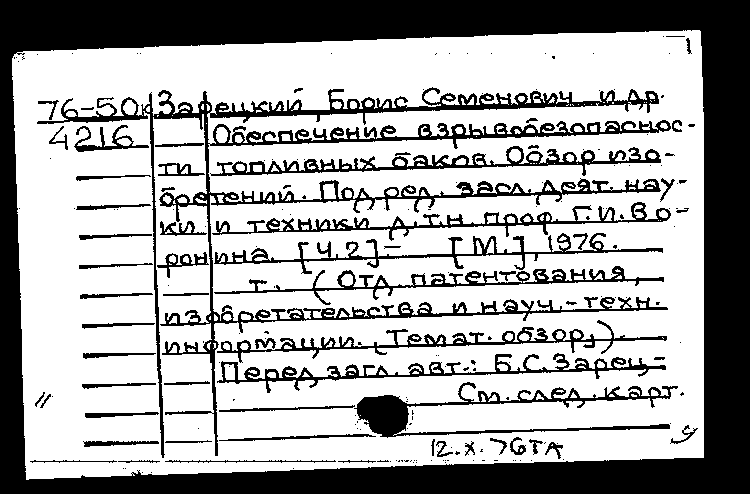 1
76-50к Зарецкий, Борис Семенович и др.
4216 Обеспечение взрывобезопаснос-
ти топливных баков. Обзор изо-
бретений. Под ред. засл. деят. нау-
ки и техники д.т.н. проф. Г.И. Во-
ронина. [Ч.2]- [М.], 1976.
т. (Отд. патентования,
изобретательства и науч.-техн.
информации. Темат. обзор).
Перед загл. авт.: Б.С. Зарец-
См. след. карт.
12.X.76ТА